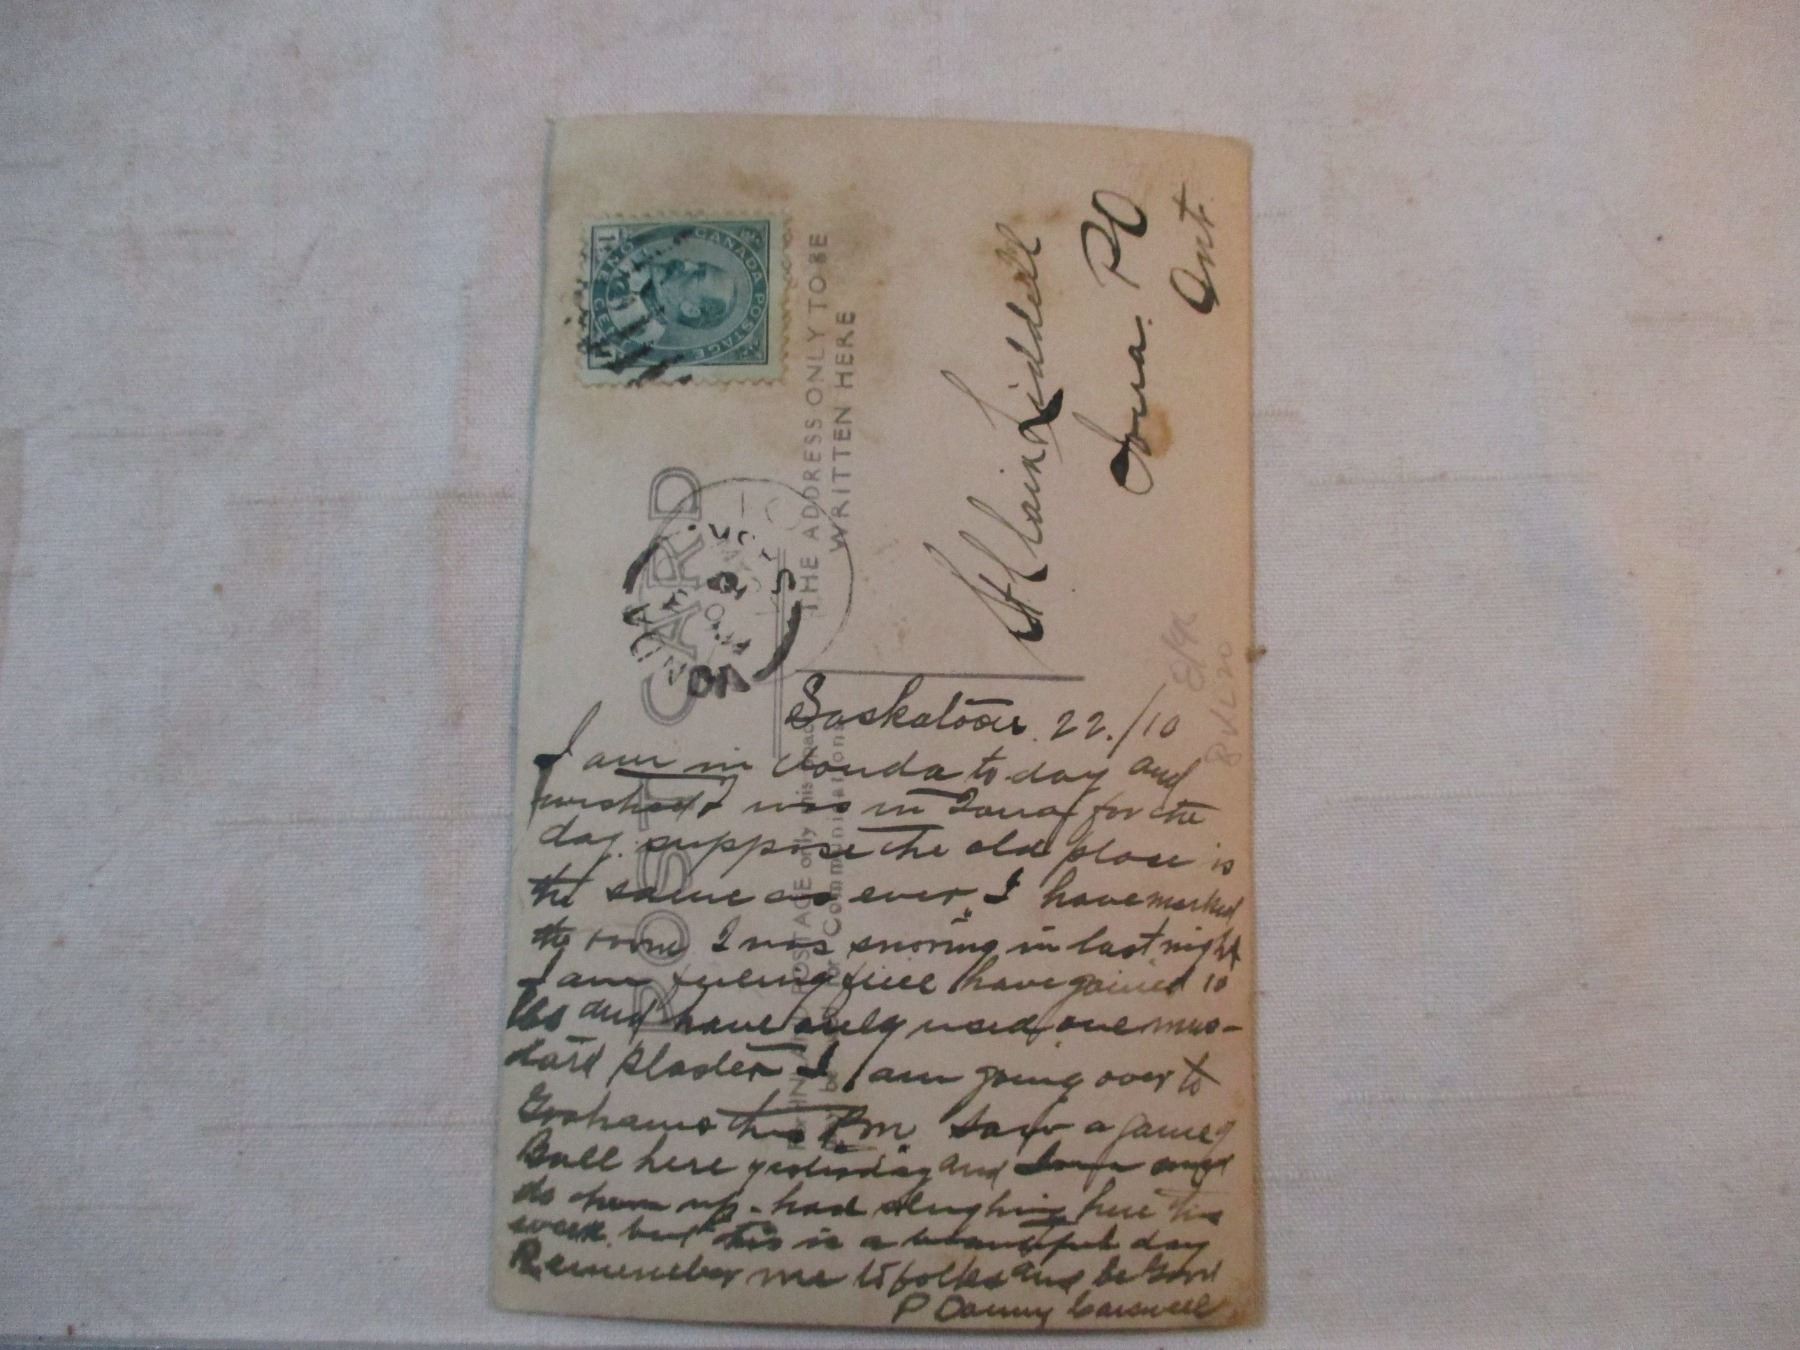 CANADA POSTAGE
ONE CENT
POST CARD
THE ADDRESS ONLY TO BE
WRITTEN HERE
St Clair Liddell
Iona. PO
Ont.
Saskatoon 22./10
I am in Vonda to day and
wished I was in Iona for the
day. suppose the old place is
the same as ever. I have marked
the room I was snoring in last night
I am feeling fine have gained 10
lbs and have only used one mus-
tard plaster I am going over to
Grahams this P.m. Saw a game of
Ball here yesterday and Iona
do them up. had sleighing here this
week but this is a beautiful day
Remember me to folks and be Good
P Danny Carswell